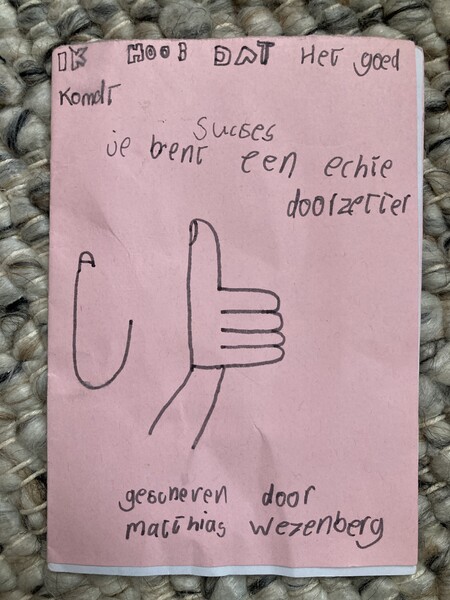 IK HOOB DAT Het goed
komdt
Sucses
je bent een echte
doorzetter
gescheven door
matthias wezenberg